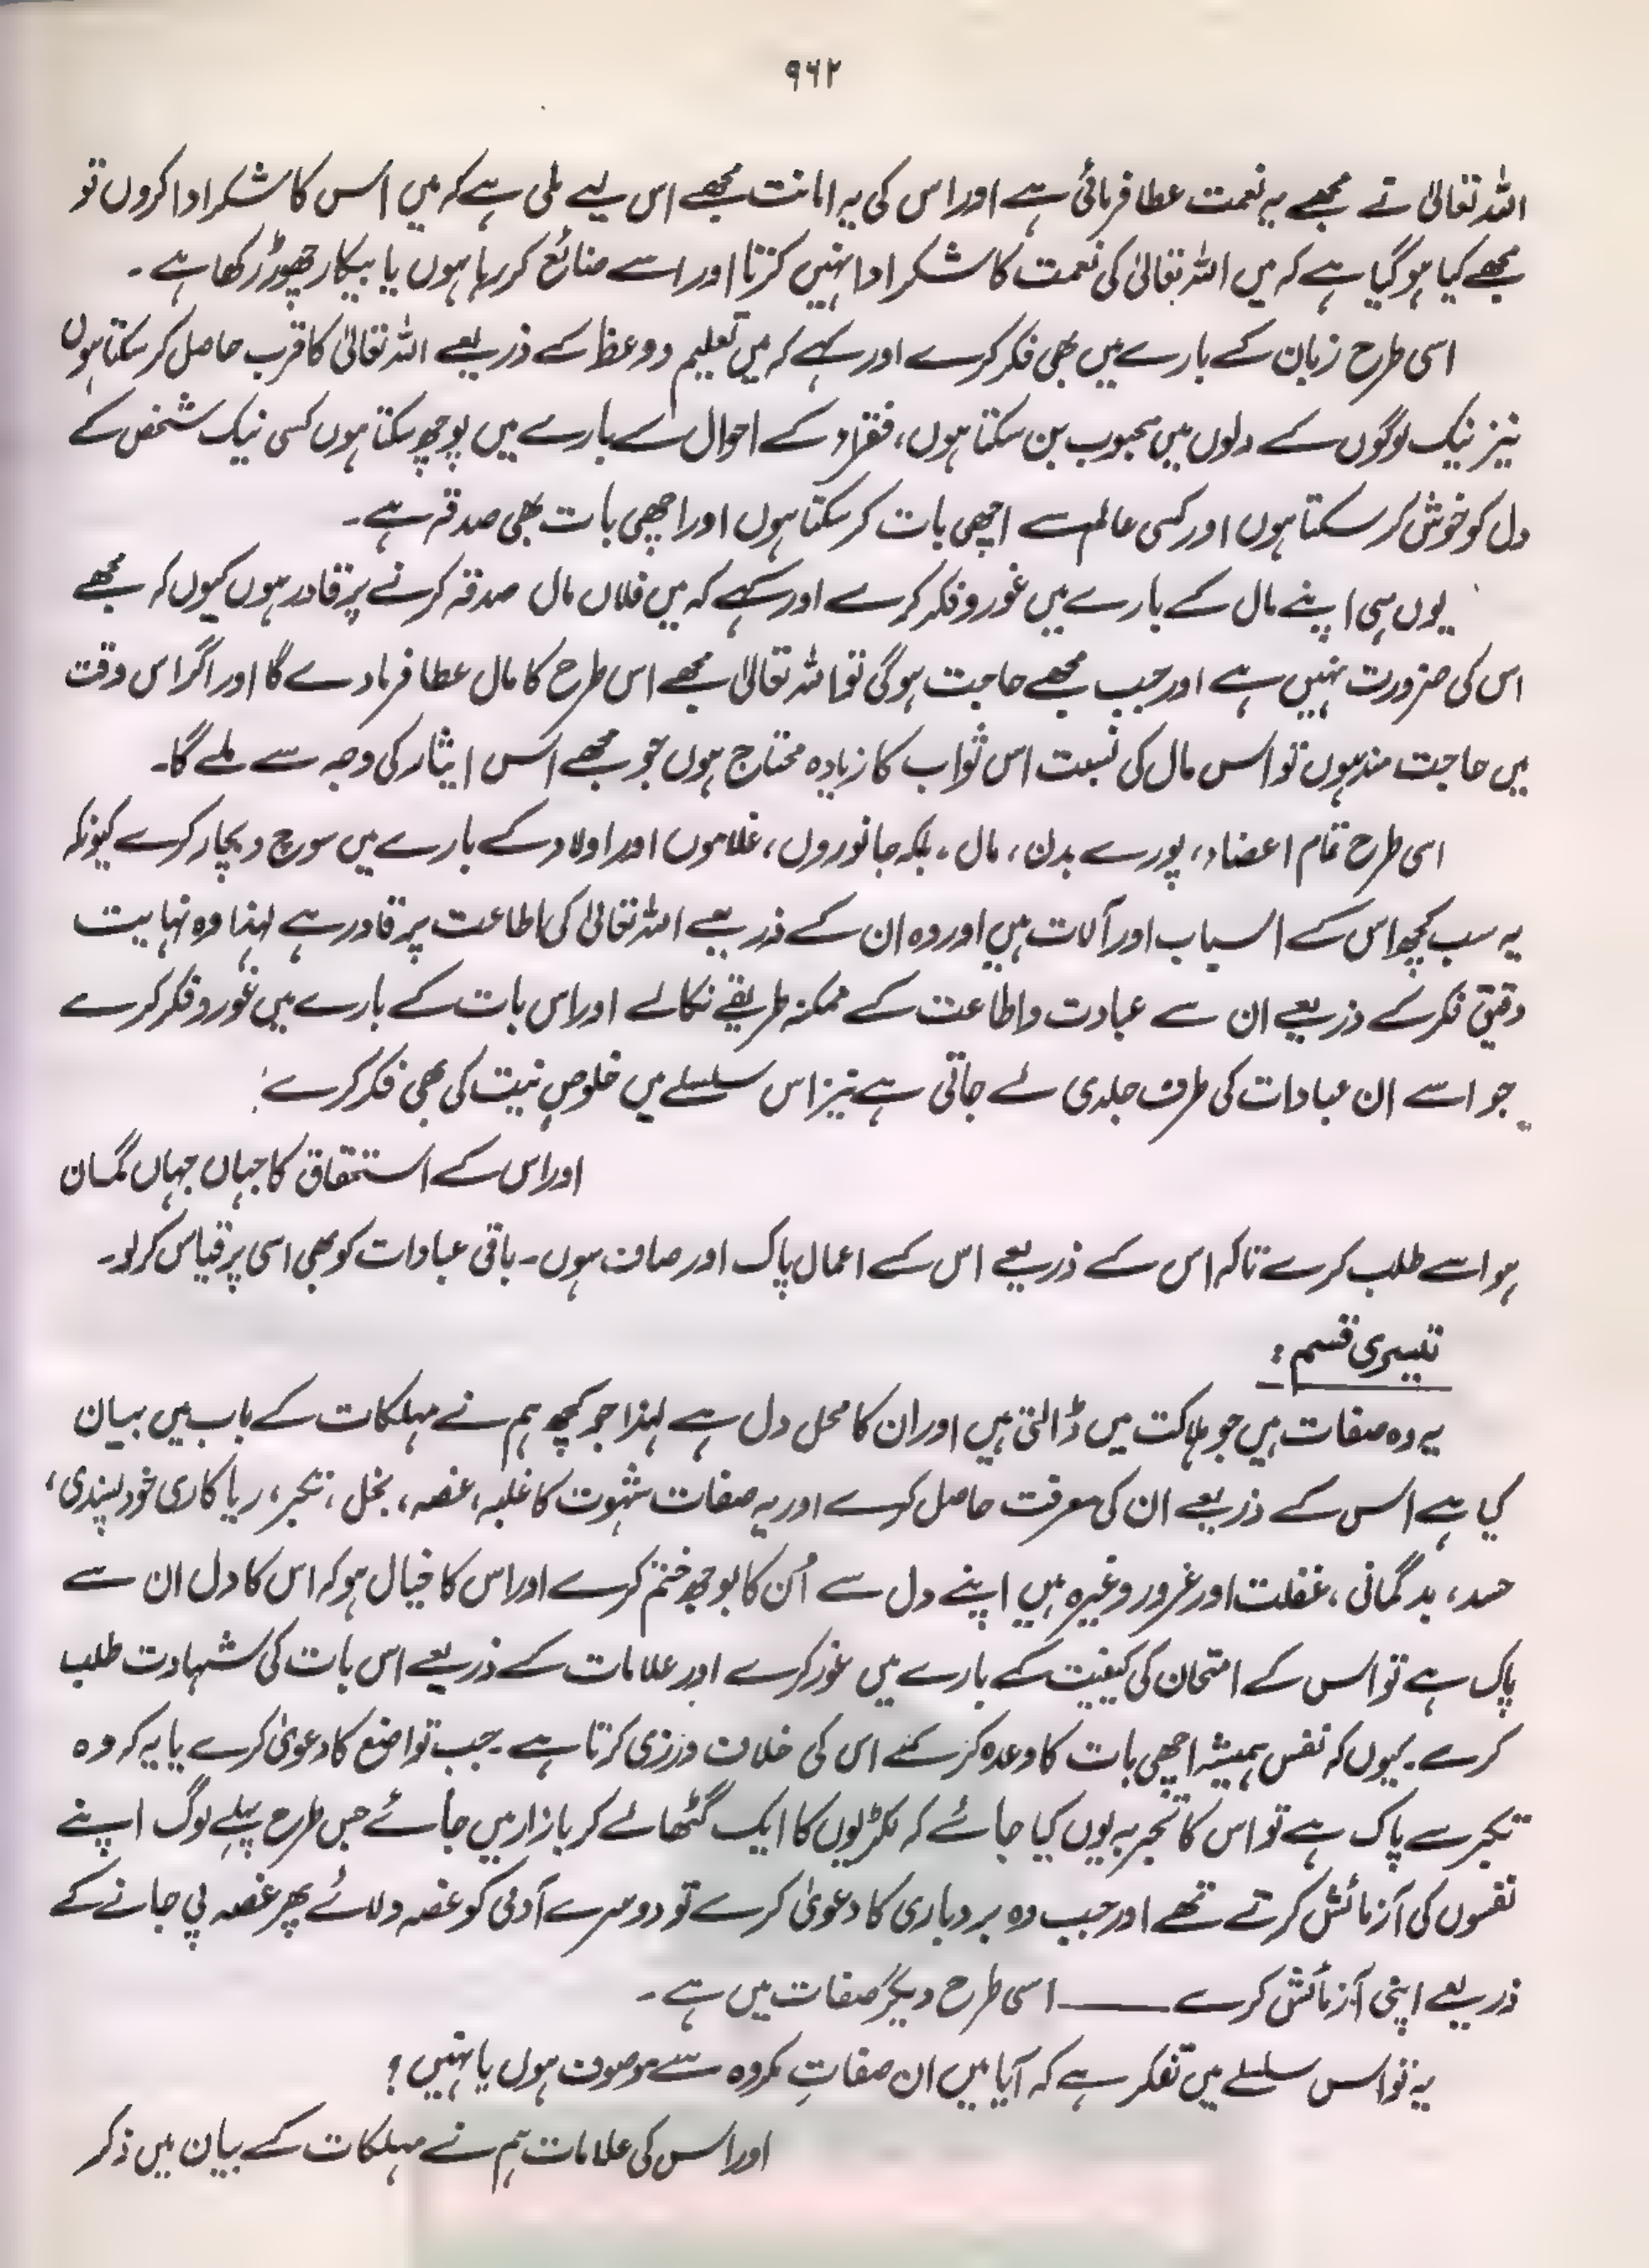 ۹۶۲
اللہ تعالیٰ نے مجھے یہ نعمت عطا فرمائی ہے اور اس کی یہ امانت مجھے اس لیے ملی ہے کہ میں اس کا شکر ادا کروں تو
مجھے کیا ہو گیا ہے کہ میں اللہ تعالیٰ کی نعمت کا شکر ادا نہیں کرتا اور اسے ضائع کر رہا ہوں یا بیکار چھوڑ رکھا ہے ۔
اسی طرح زبان کے بارے میں بھی فکر کرے اور کہے کہ میں تعلیم و وعظ کے ذریعے اللہ تعالیٰ کا قرب حاصل کر سکتا ہوں
نیز نیک لوگوں کے دلوں میں محبوب بن سکتا ہوں، فقراء کے احوال کے بارے میں پوچھ سکتا ہوں کسی نیک شخص کے
دل کو خوش کر سکتا ہوں اور کسی عالم سے اچھی بات کر سکتا ہوں اور اچھی بات بھی صدقہ ہے۔
یوں ہی اپنے مال کے بارے میں غور و فکر کرے اور کہے کہ میں فلاں مال صدقہ کرنے پر قادر ہوں کیوں کہ مجھے
اس کی ضرورت نہیں ہے اور جب مجھے حاجت ہوگی تو اللہ تعالیٰ مجھے اس طرح کا مال عطا فرما دے گا اور اگر اس وقت
میں حاجت مند ہوں تو اس مال کی نسبت اس ثواب کا زیادہ محتاج ہوں جو مجھے اس ایثار کی وجہ سے ملے گا۔
اسی طرح تمام اعضاء، پورے بدن، مال، بلکہ جانوروں، غلاموں اور اولاد کے بارے میں سوچ و بچار کرے کیونکہ
یہ سب کچھ اس کے اسباب اور آلات ہیں اور وہ ان کے ذریعے اللہ تعالیٰ کی اطاعت پر قادر ہے لہٰذا وہ نہایت
دقیق فکر کے ذریعے ان سے عبادت و اطاعت کے ممکنہ طریقے نکالے اور اس بات کے بارے میں غور و فکر کرے
جو اسے ان عبادات کی طرف جلدی لے جاتی ہے نیز اس سلسلے میں خلوصِ نیت کی بھی فکر کرے
اور اس کے استحقاق کا جہاں جہاں گمان
ہو اسے طلب کرے تاکہ اس کے ذریعے اس کے اعمال پاک اور صاف ہوں۔ باقی عبادات کو بھی اسی پر قیاس کر لو۔
تیسری قسم :
یہ وہ صفات ہیں جو ہلاکت میں ڈالتی ہیں اور ان کا محل دل ہے لہٰذا جو کچھ ہم نے مہلکات کے باب میں بیان
کیا ہے اس کے ذریعے ان کی معرفت حاصل کرے اور یہ صفات شہوت کا غلبہ، غصہ، بخل، تکبر، ریا کاری خود پسندی،
حسد، بدگمانی، غفلت اور غرور وغیرہ ہیں اپنے دل سے اُن کا بوجھ ختم کرے اور اس کا خیال ہو کہ اس کا دل ان سے
پاک ہے تو اس کے امتحان کی کیفیت کے بارے میں غور کرے اور علامات کے ذریعے اس بات کی شہادت طلب
کرے۔ کیوں کہ نفس ہمیشہ اچھی بات کا وعدہ کر کے اس کی خلاف ورزی کرتا ہے۔ جب تواضع کا دعویٰ کرے یا یہ کہ وہ
تکبر سے پاک ہے تو اس کا تجربہ یوں کیا جائے کہ لکڑیوں کا ایک گٹھا لے کر بازار میں جائے جس طرح پہلے لوگ اپنے
نفسوں کی آزمائش کرتے تھے اور جب وہ بردباری کا دعویٰ کرے تو دوسرے آدمی کو غصہ دلائے پھر غصہ پی جانے کے
ذریعے اپنی آزمائش کرے ——— اسی طرح دیگر صفات میں ہے۔
یہ تو اس سلسلے میں تفکر ہے کہ آیا میں ان صفاتِ مکروہ سے موصوف ہوں یا نہیں؟
اور اس کی علامات ہم نے مہلکات کے بیان میں ذکر